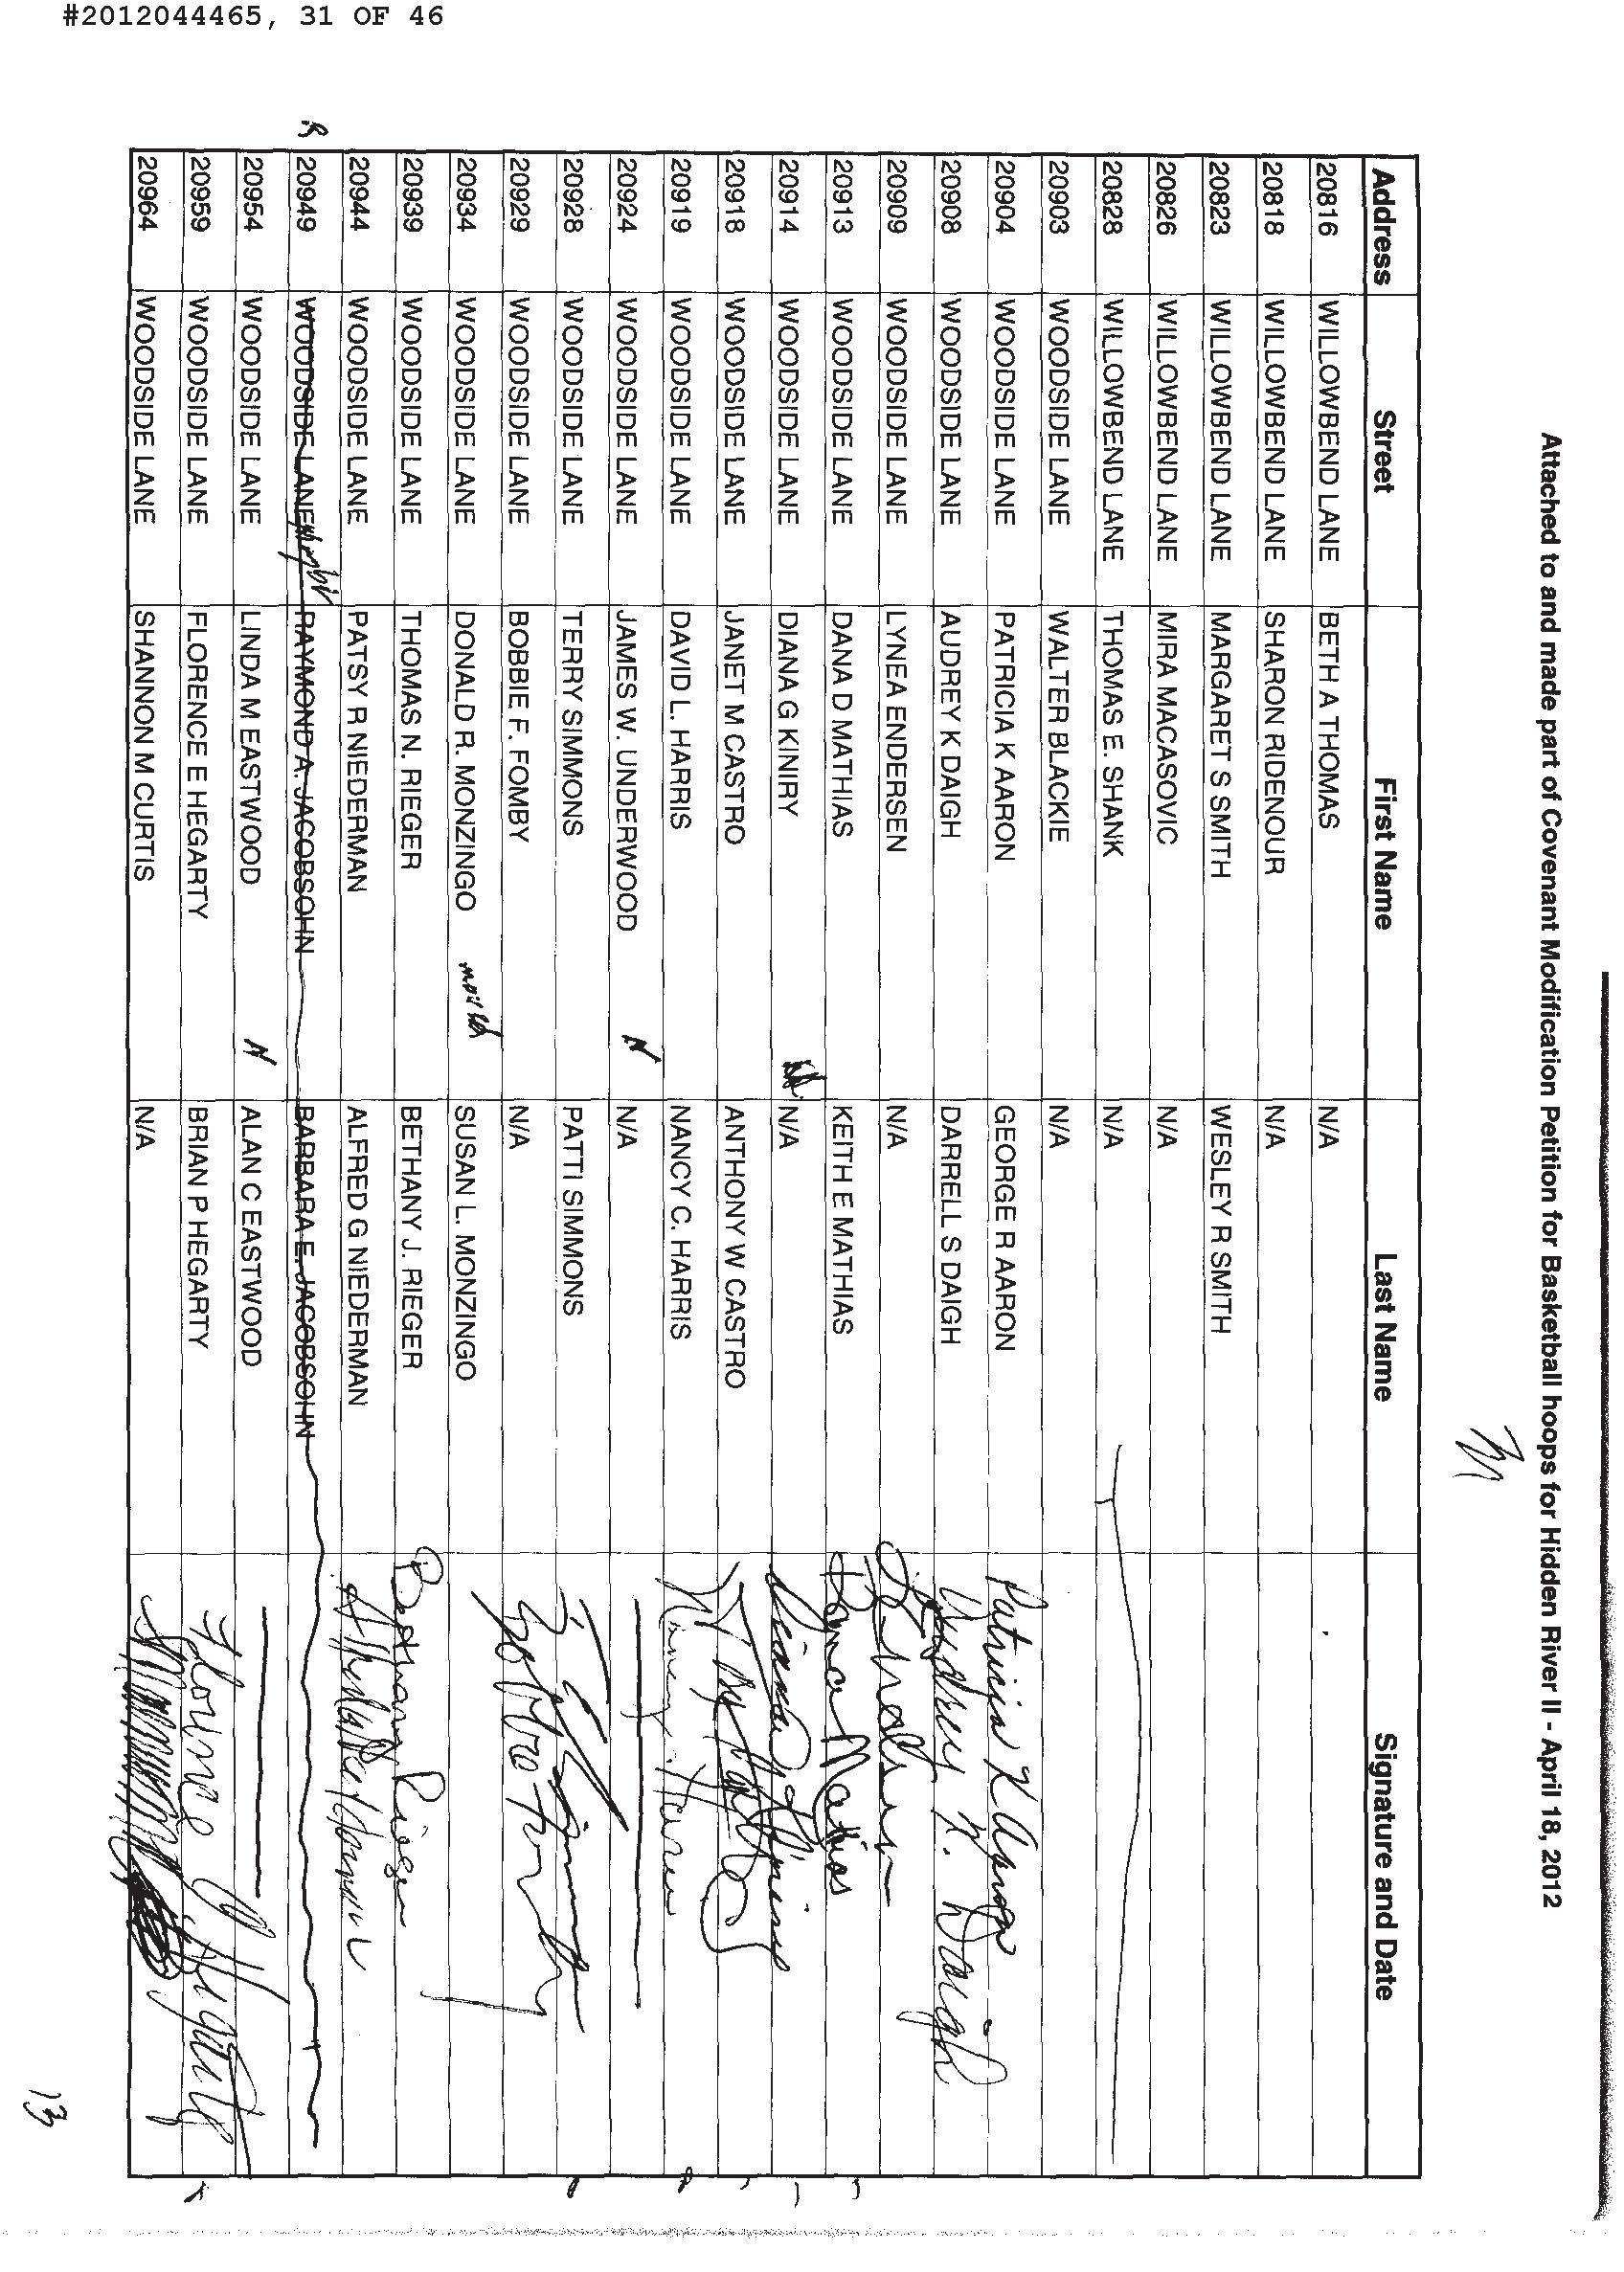 #2012044465, 31 OF 46
Attached to and made part of Covenant Modification Petition for Basketball hoops for Hidden River II - April 18, 2012
Address Street First Name Last Name Signature and Date
20816 WILLOWBEND LANE BETH A THOMAS N/A
20818 WILLOWBEND LANE SHARON RIDENOUR N/A
20823 WILLOWBEND LANE MARGARET S SMITH WESLEY R SMITH
20826 WILLOWBEND LANE MIRA MACASOVIC N/A
20828 WILLOWBEND LANE THOMAS E. SHANK N/A
20903 WOODSIDE LANE WALTER BLACKIE N/A
20904 WOODSIDE LANE PATRICIA K AARON GEORGE R AARON Patricia K Aaron
20908 WOODSIDE LANE AUDREY K DAIGH DARRELL S DAIGH Audrey K. Daigh
20909 WOODSIDE LANE LYNEA ENDERSEN N/A
20913 WOODSIDE LANE DANA D MATHIAS KEITH E MATHIAS Dana Mathias
20914 WOODSIDE LANE DIANA G KINIRY N/A Diana G Kiniry
20918 WOODSIDE LANE JANET M CASTRO ANTHONY W CASTRO
20919 WOODSIDE LANE DAVID L. HARRIS NANCY C. HARRIS Nancy Harris
20924 WOODSIDE LANE JAMES W. UNDERWOOD N N/A
20928 WOODSIDE LANE TERRY SIMMONS PATTI SIMMONS
20929 WOODSIDE LANE BOBBIE F. FOMBY N/A
20934 WOODSIDE LANE DONALD R. MONZINGO mailed SUSAN L. MONZINGO
20939 WOODSIDE LANE THOMAS N. RIEGER BETHANY J. RIEGER Bethany Rieger
20944 WOODSIDE LANE PATSY R NIEDERMAN ALFRED G NIEDERMAN
R 20949 WOODSIDE LANE RAYMOND A. JACOBSOHN BARBARA E. JACOBSOHN
20954 WOODSIDE LANE LINDA M EASTWOOD N ALAN C EASTWOOD
20959 WOODSIDE LANE FLORENCE E HEGARTY BRIAN P HEGARTY Florence E Hegarty
20964 WOODSIDE LANE SHANNON M CURTIS N/A
13